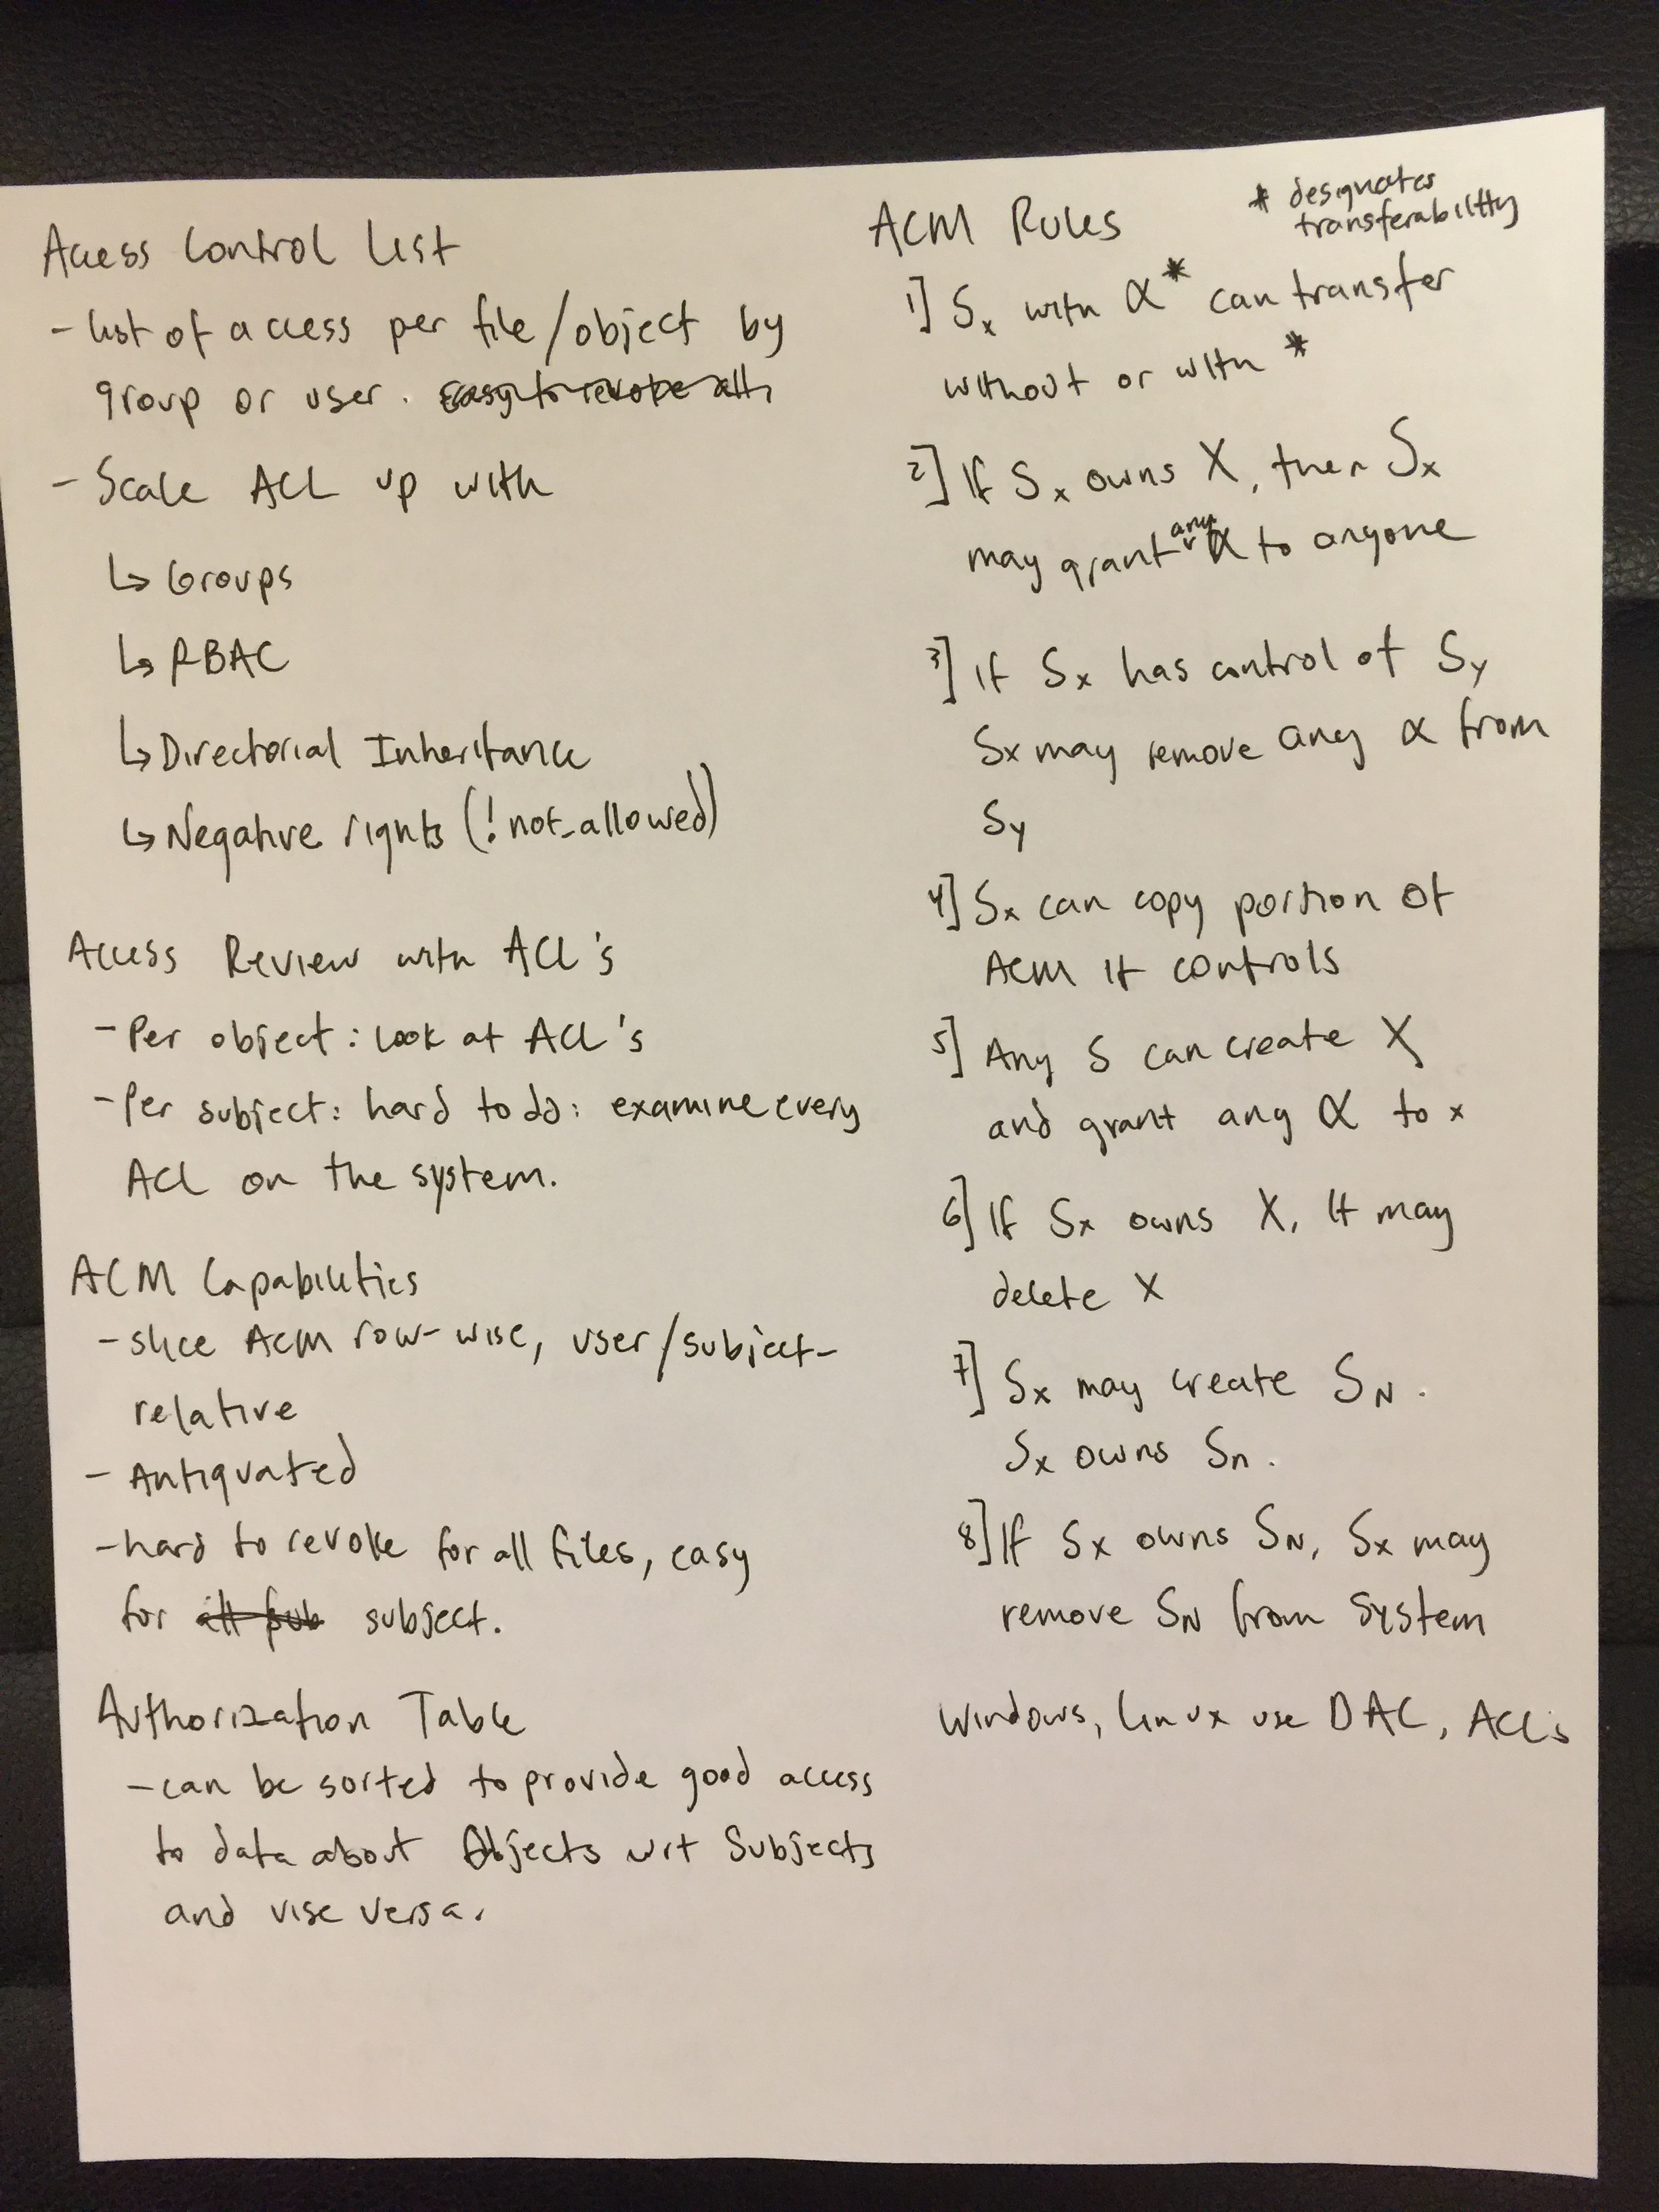 Access Control List
- list of access per file/object by
group or user.
- Scale ACL up with
↳ Groups
↳ RBAC
↳ Directorial Inheritance
↳ Negative rights (!not_allowed)
Access Review with ACL's
- Per object: look at ACL's
- Per subject: hard to do: examine every
ACL on the system.
ACM Capabilities
- slice ACM row-wise, user/subject-
relative
- Antiquated
- hard to revoke for all files, easy
for all sub subject.
Authorization Table
- can be sorted to provide good access
to data about Objects wrt Subjects
and vise versa.
ACM Rules
* designates
transferability
1] Sx with α* can transfer
without or with *
2] If Sx owns X, then Sx
may grant any α to anyone
3] If Sx has control of Sy
Sx may remove any α from
Sy
4] Sx can copy portion of
ACM it controls
5] Any S can create X
and grant any α to x
6] If Sx owns X, it may
delete X
7] Sx may create SN.
Sx owns Sn.
8] If Sx owns SN, Sx may
remove SN from system
Windows, Linux use DAC, ACLs